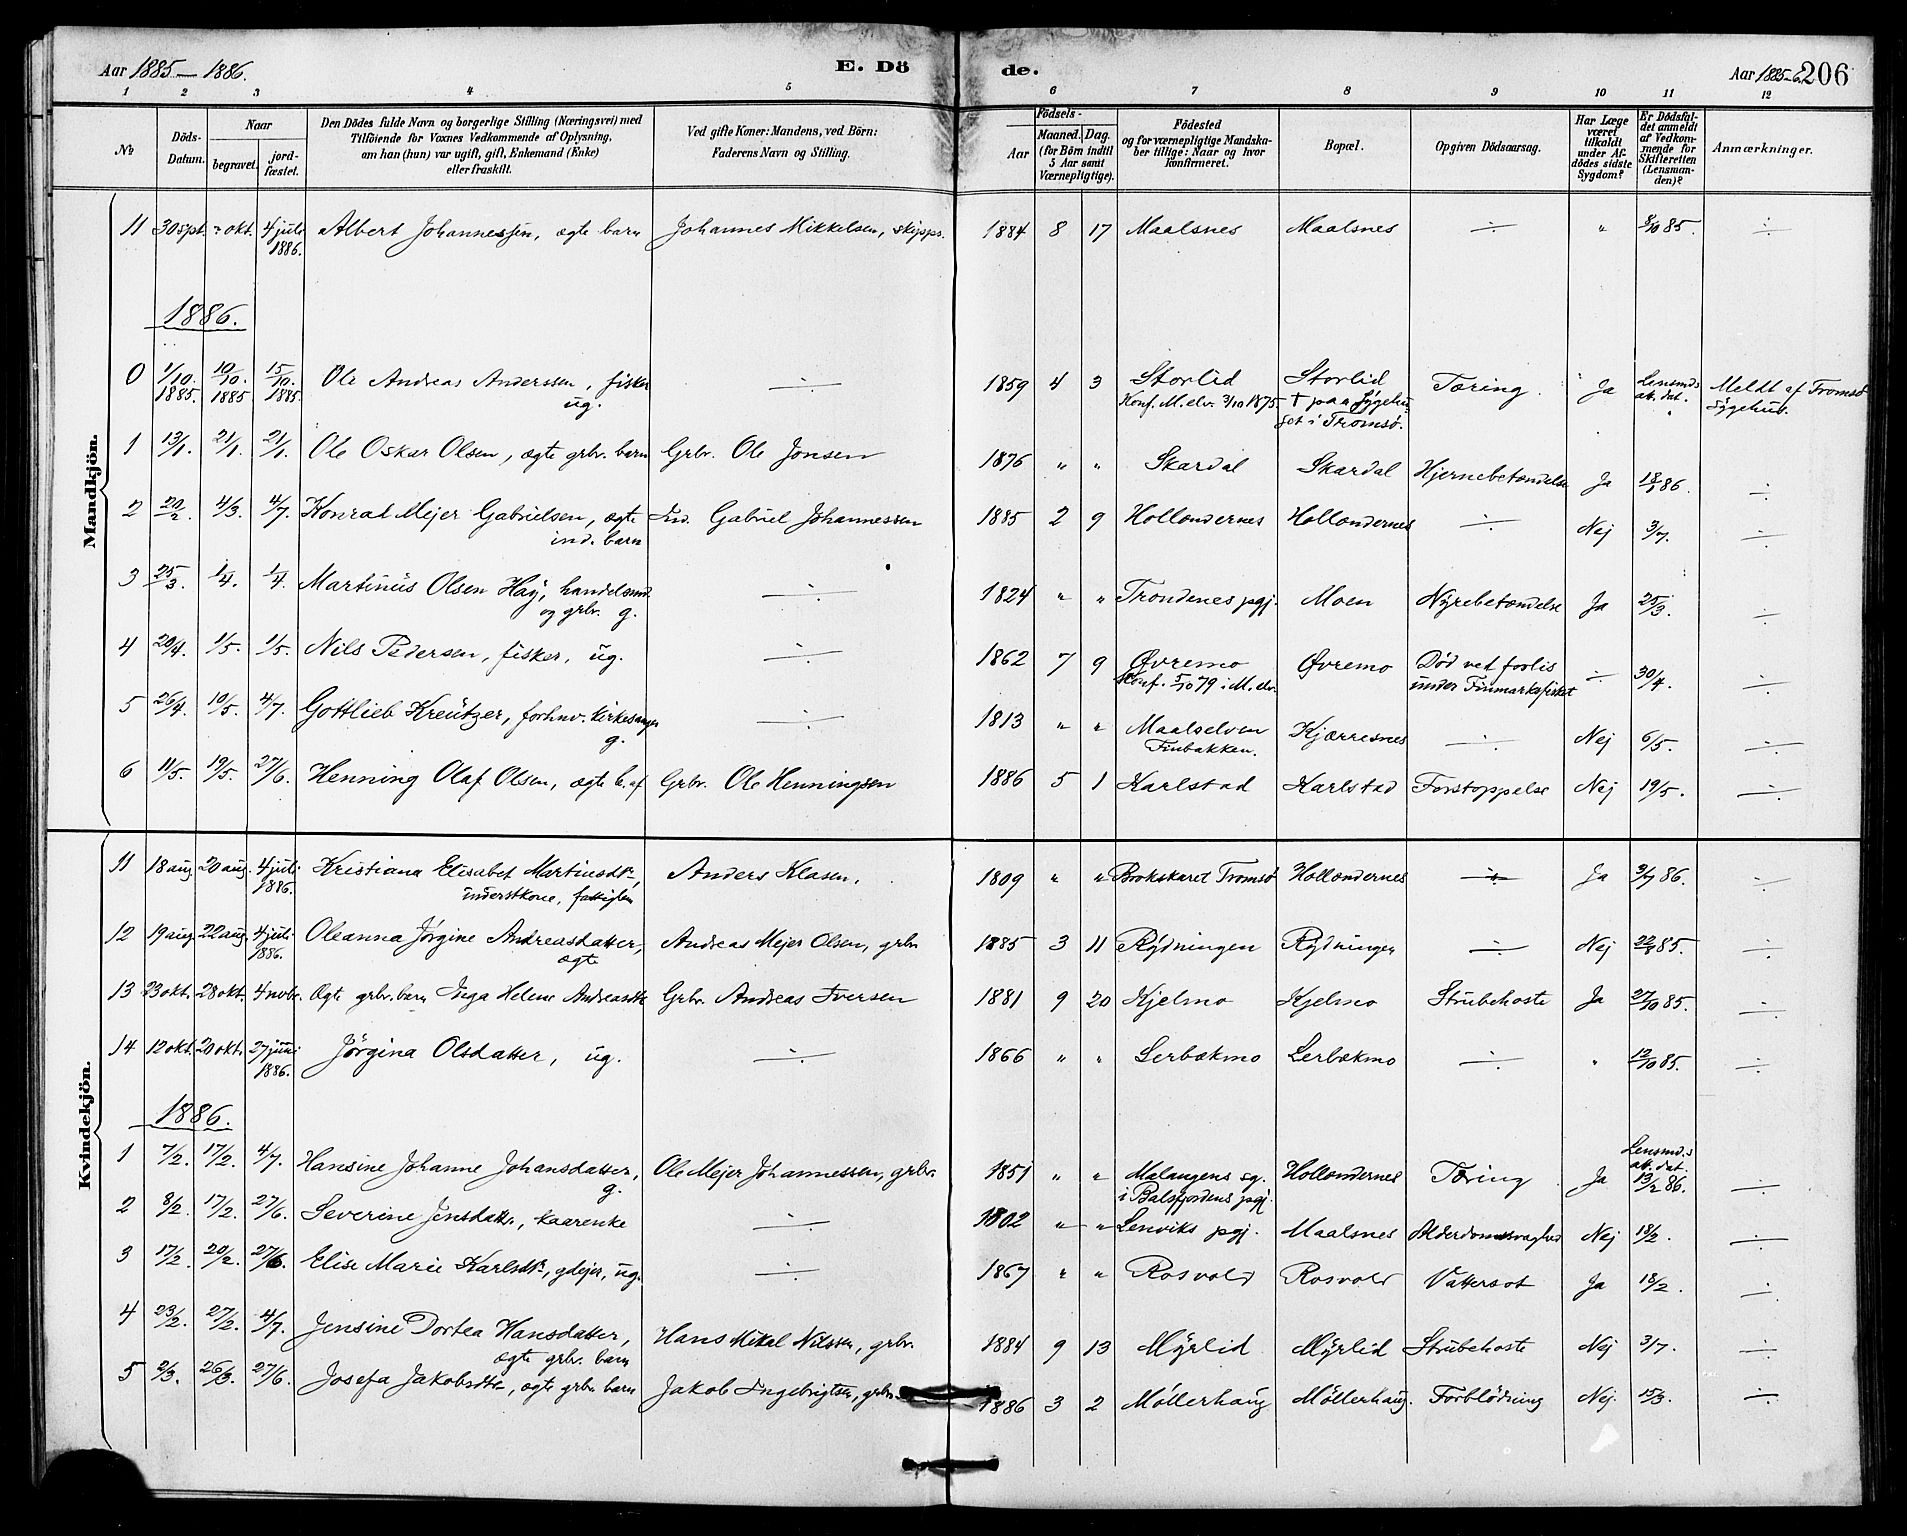 Aar 1885 — 1886.
E. Dö
de.
Aar 1885-6.
206
1 2 3 4 5 6 7 8 9 10 11 12
№
Döds-Datum.
Naar
begravet.
jord-fæstet.
Den Dödes fulde Navn og borgerlige Stilling (Næringsvei) med
Tilföiende for Voxnes Vedkommende af Oplysning,
om han (hun) var ugift, gift, Enkemand (Enke)
eller fraskilt.
Ved gifte Koner: Mandens, ved Börn:
Faderens Navn og Stilling.
Födsels-
Aar
Maaned. Dag.
(for Börn indtil
5 Aar samt
Værnepligtige).
Födested
og for værnepligtige Mandska-
ber tillige: Naar og hvor
konfirmeret.
Bopæl.
Opgiven Dödsaarsag.
Har Læge
været
tilkaldt
under Af-
dödes sidste
Sygdom?
Er Dödsfal-
det anmeldt
af Vedkom-
mende for
Skifteretten
(Lensman-
den)?
Anmærkninger.
Mandkjön.
11 30 spt. " okt. 4 juli 1886. Albert Johannessen, ægte barn Johannes Mikkelsen, skipps. 1884 8 17 Maalsnes Maalsnes ÷ " 8/10 85. ÷
1886.
0 1/10. 1885. 10/10. 1885 15/10. 1885. Ole Andreas Anderssen, fisker ug. ÷ 1859 4 3 Storlid Storlid Tæring. Ja Lensmd.s att. dat. Meldt af Tromsø
Konf. M.elv. 3/10 1875. † paa Sygehu- Sygehus.
set i Tromsø.
1 13/1. 21/1. 21/1. Ole Oskar Olsen, ægte grbr. barn Grbr. Ole Jonsen 1876 " " Skardal Skardal Hjernebetændelse Ja 18/1 86. ÷
2 20/2 4/3. 4/7. Konrad Mejer Gabrielsen, ægte Ind. Gabriel Johannessen 1885 2 9 Hollendernes Hollendernes ÷ Nej 3/7. ÷
ind. barn
3 25/3. 1/4. 1/4. Martinus Olsen Høy, handelsmd. ÷ 1824 " " Trondenes pgj. Moen Nyrebetændelse Ja 25/3. ÷
og grbr. g.
4 20/4. 1/5. 1/5. Nils Pedersen, fisker, ug. ÷ 1862 7 9 Øvremo Øvremo Død ved forlis ÷ 30/4. ÷
Konf. 5/10 79 i M.elv. under Finmarksfisket
5 26/4 10/5. 4/7. Gottlieb Kreutzer, forhnv. kirkesanger ÷ 1813 " " Maalselven Kjærresnes ÷ Nej 6/5. ÷
g. Finbakken.
6 11/5. 19/5. 27/6. Henning Olaf Olsen, ægte b. af Grbr. Ole Henningsen 1886 5 1 Karlstad Karlstad Forstoppelse Nej 19/5. ÷
Kvindekjön.
11 18 aug. 20 aug. 4 juli 1886. Kristiana Elisabet Martinsdtr., Anders Klasen, 1809 " " Tromsø Hollendernes ÷ Ja 3/7 86. ÷
12 19 aug. 22 aug. 4 juli 1886. Oleanna Jørgine Andreasdatter, Andreas Mejer Olsen, grbr 1885 3 11 Rydningen Rydningen ÷ Nej 22/8 85. ÷
ægte
13 23 okt. 28 okt. 4 novbr. Ægte grbr. barn Inga Helene Andreasdtr Grbr. Andreas Iversen 1881 9 20 Kjelmo Kjelmo Strubehoste Ja 27/10 85. ÷
14 12 okt. 20 okt. 27 juni 1886. Jørgina Olsdatter, ug. ÷ 1866 " " Lerbækmo Lerbækmo ÷ " 12/10 85. ÷
1886.
1 7/2. 17/2. 4/7. Hansine Johanne Johansdatter, g. Ole Mejer Johannessen, grbr. 1851 " " Malangens sg. Hollendernes Tæring Ja Lensmd.s att. dat. 13/2 86. ÷
i Balsfjordens pgj.
2 8/2. 17/2. 27/6. Severine Jensdattr, kaarenke ÷ 1802 " " Lenviks pgj. Maalsnes Alderdomssvaghed Nej 18/2. ÷
3 17/2. 20/2. 27/6. Elise Marie Karlsdtr., gdejer, ug. ÷ 1867 " " Rosvold Rosvold Vattersot Ja 18/2. ÷
4 23/2. 27/2. 4/7. Jensine Dortea Hansdatter, Hans Mikal Nilssen, grbr. 1884 9 13 Myrlid Myrlid Strubehoste Nej 3/7. ÷
ægte grbr. barn
5 2/3. 26/3. 27/6. Josefa Jakobsdtr, ægte grbr barn Jakob Ingebrigtsen, grbr. 1886 3 2 Møllerhaug Møllerhaug. Forblødning Nej. 15/3. ÷